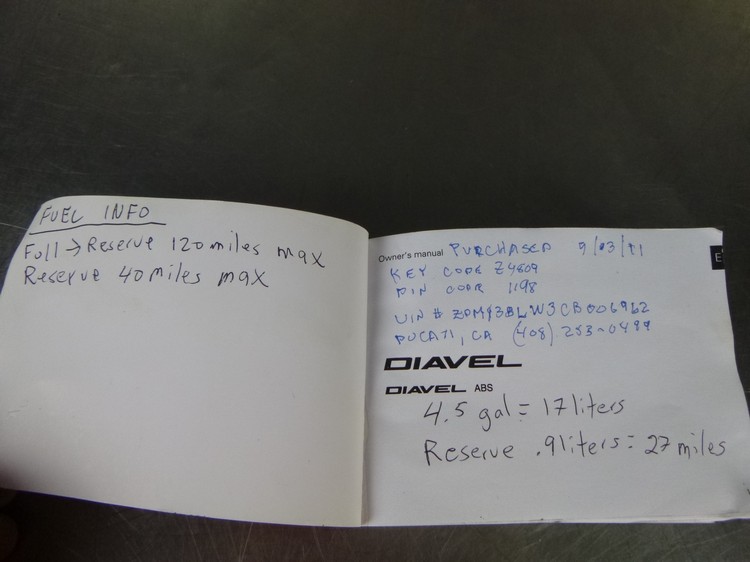 FUEL INFO
Full → Reserve 120 miles max
Reserve 40 miles max
Owner's manual PURCHASED 9/03/11
E
KEY CODE Z4809
PIN CODE 1198
VIN # ZDM13BLW3CB006962
DUCATI, CA (408) 283-0499
DIAVEL
DIAVEL ABS
4.5 gal = 17 liters
Reserve .9 liters = 27 miles